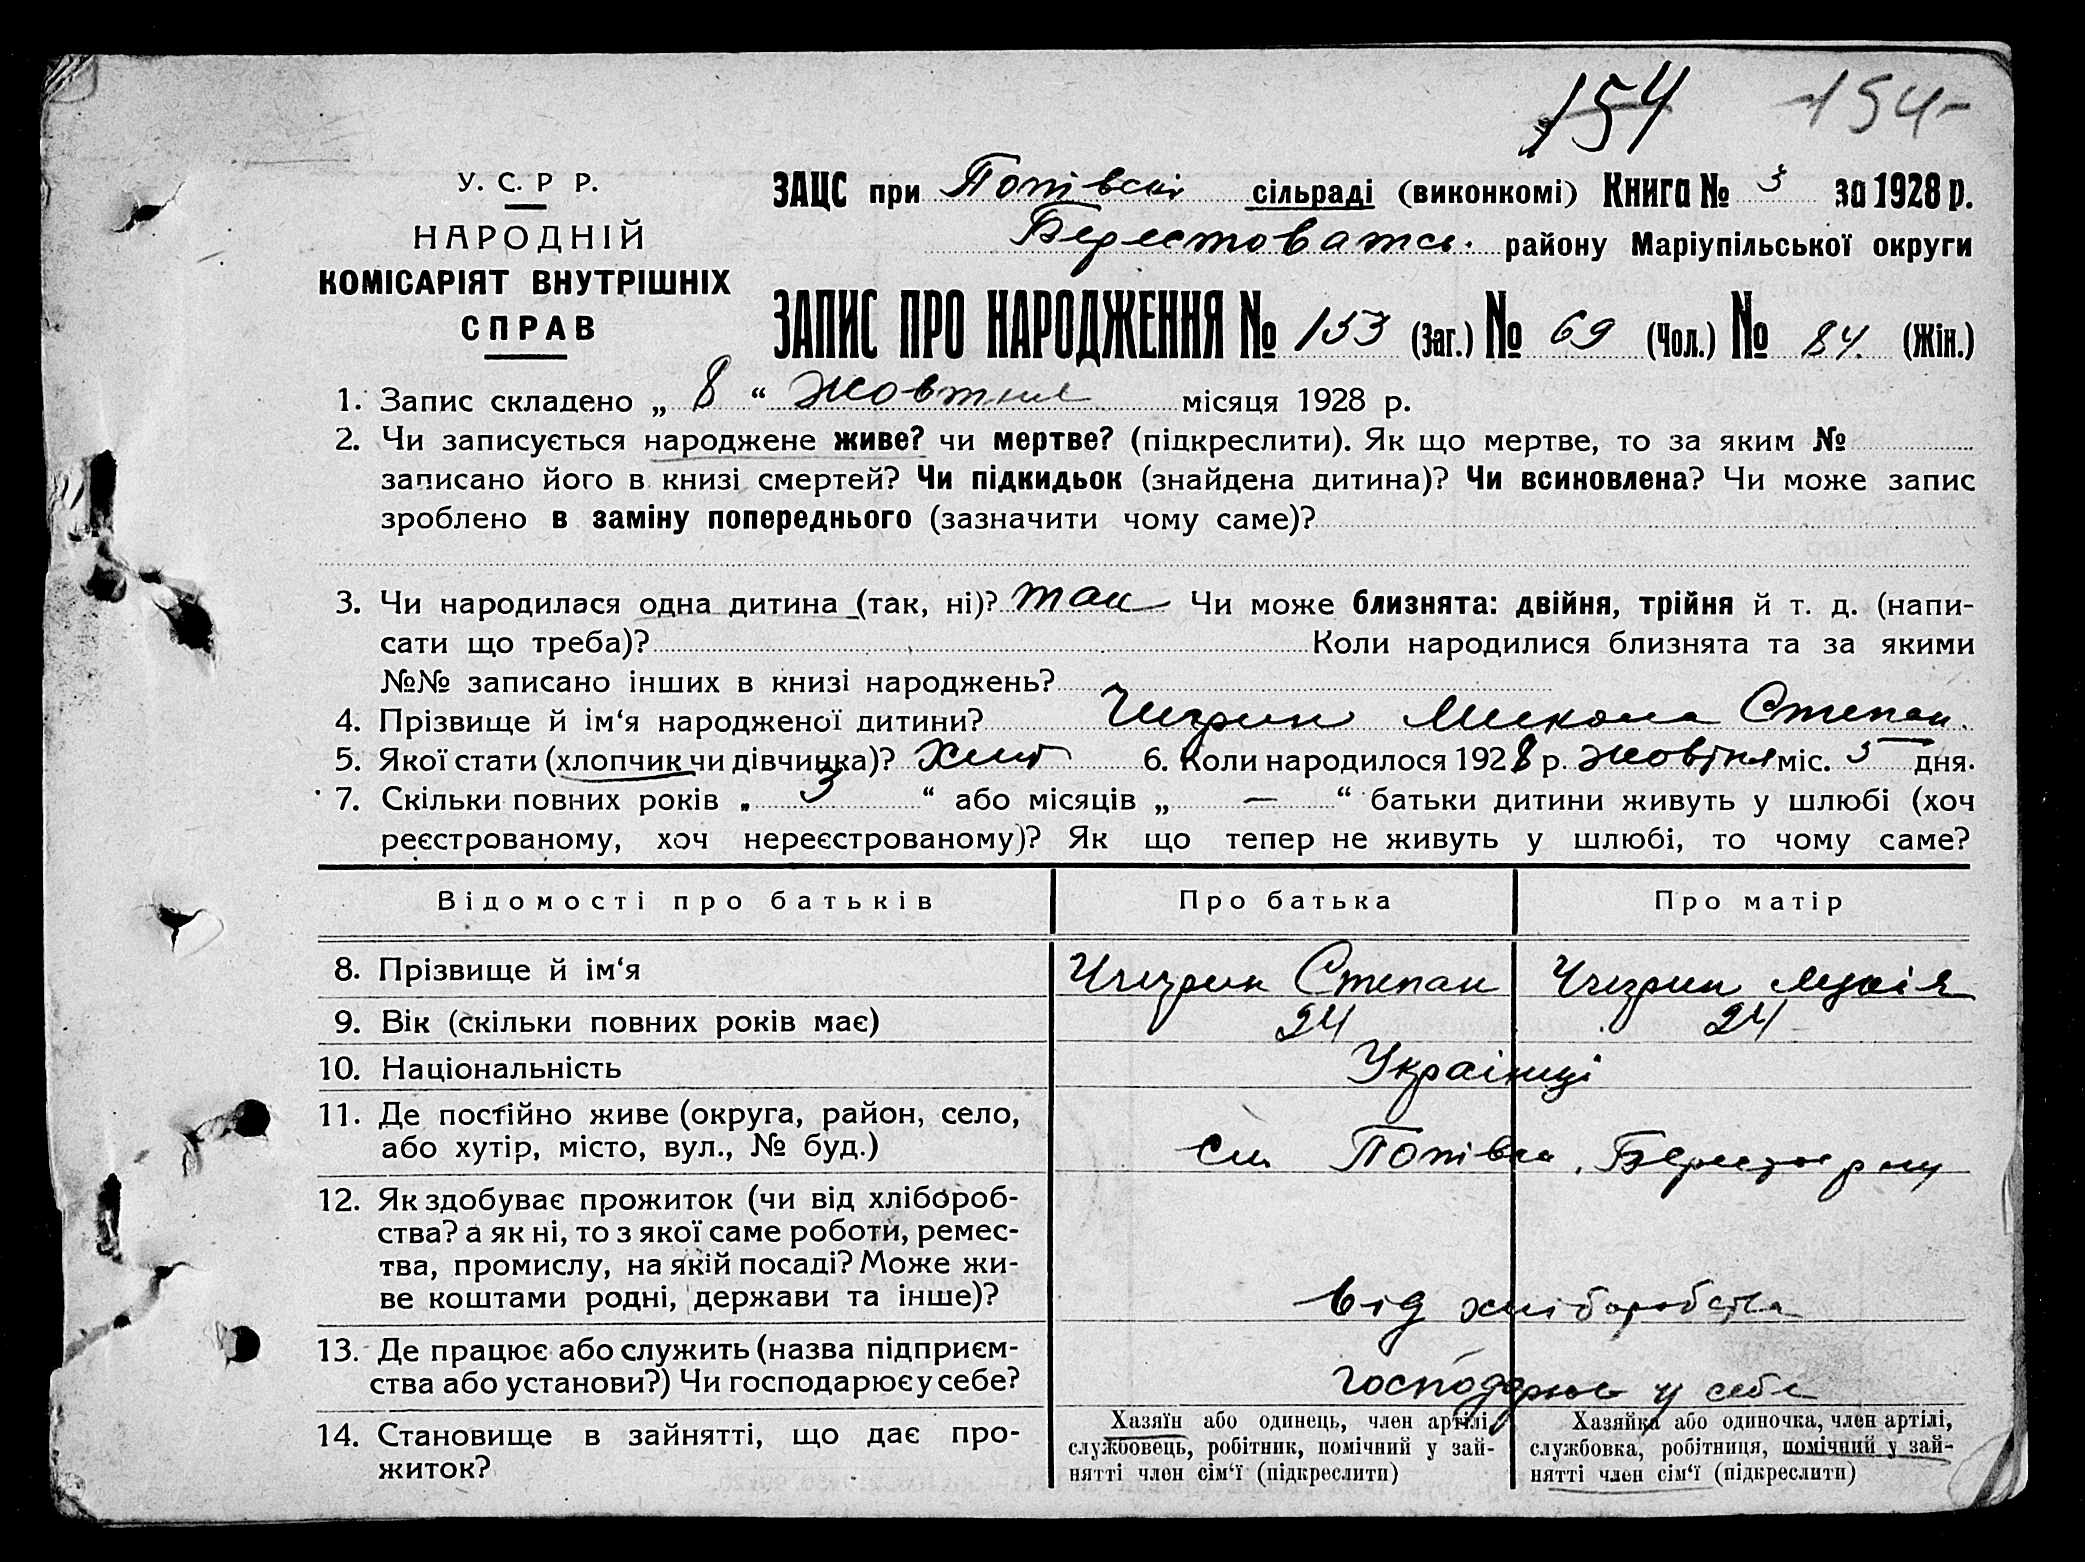 154 154
У. С. Р Р.
НАРОДНІЙ
КОМІСАРІЯТ ВНУТРІШНІХ
СПРАВ
ЗАЦС при Попівскій сільраді (виконкомі) Книга № 3 за 1928 р.
Берестоватск. району Маріупільської округи
ЗАПИС ПРО НАРОДЖЕННЯ № 153 (Заг.) № 69 (Чол.) № 84. (Жін.)
1. Запис складено „ 8 “ Жовтня місяця 1928 р.
2. Чи записується народжене живе? чи мертве? (підкреслити). Як що мертве, то за яким №
записано його в книзі смертей? Чи підкидьок (знайдена дитина)? Чи всиновлена? Чи може запис
зроблено в заміну попереднього (зазначити чому саме)?
3. Чи народилася одна дитина (так, ні)? так Чи може близнята: двійня, трійня й т. д. (напи-
сати що треба)? Коли народилися близнята та за якими
№№ записано інших в книзі народжень?
4. Прізвище й ім‘я народженої дитини? Чигрин Микола Степан.
5. Якої стати (хлопчик чи дівчинка)? 6. Коли народилося 1928 р. жовтня міс. 5 дня.
7. Скільки повних років „ 3 “ або місяців „ — “ батьки дитини живуть у шлюбі (хоч
реєстрованому, хоч нереєстрованому)? Як що тепер не живуть у шлюбі, то чому саме?
Відомості про батьків Про батька Про матір
8. Прізвище й ім‘я Чигрин Степан Чигрин
9. Вік (скільки повних років має) 24 24
10. Національність Українці
11. Де постійно живе (округа, район, село,
або хутір, місто, вул., № буд.) Попівка
12. Як здобуває прожиток (чи від хлібороб-
ства? а як ні, то з якої саме роботи, ремес-
тва, промислу, на якій посаді? Може жи-
ве коштами родні, держави та інше)? від хліборобства
13. Де працює або служить (назва підприєм-
ства або установи?) Чи господарює у себе? господарює у себе
14. Становище в зайнятті, що дає про-
житок?
Хазяїн або одинець, член артілі,
службовець, робітник, помічний у зай-
нятті член сім‘ї (підкреслити)
Хазяйка або одиночка, член артілі,
службовка, робітниця, помічний у зай-
нятті член сім‘ї (підкреслити)